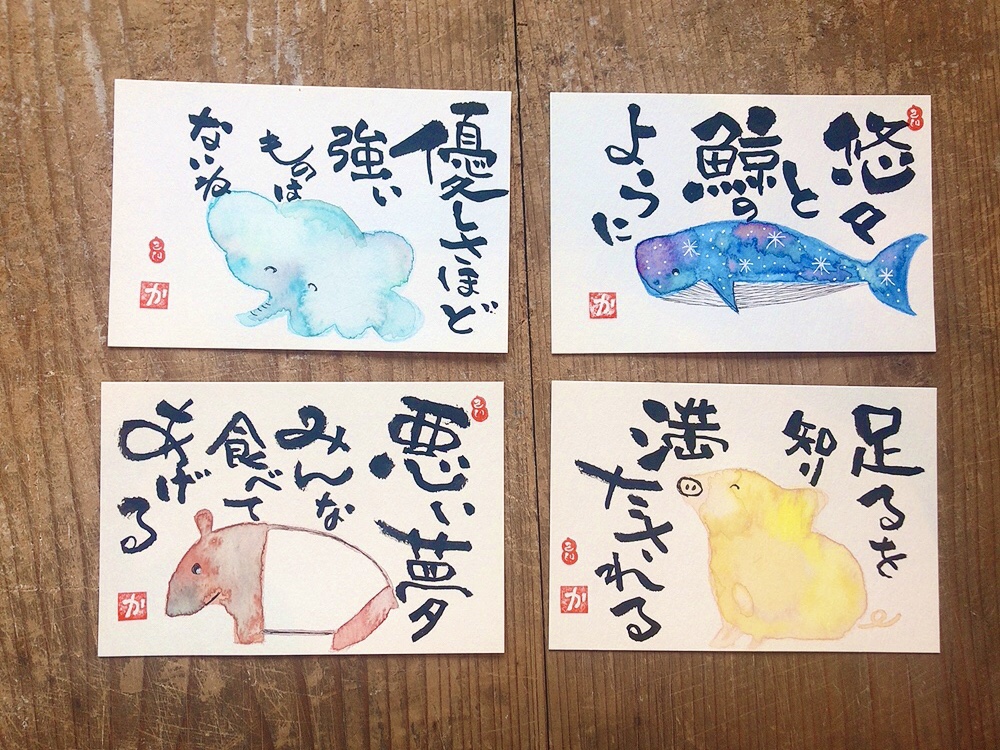 優しさほど
強い
ものは
ないね
か
悠々
と
鯨の
ように
か
悪い夢
みんな
食べて
あげる
か
足るを
知り
満
たされる
か